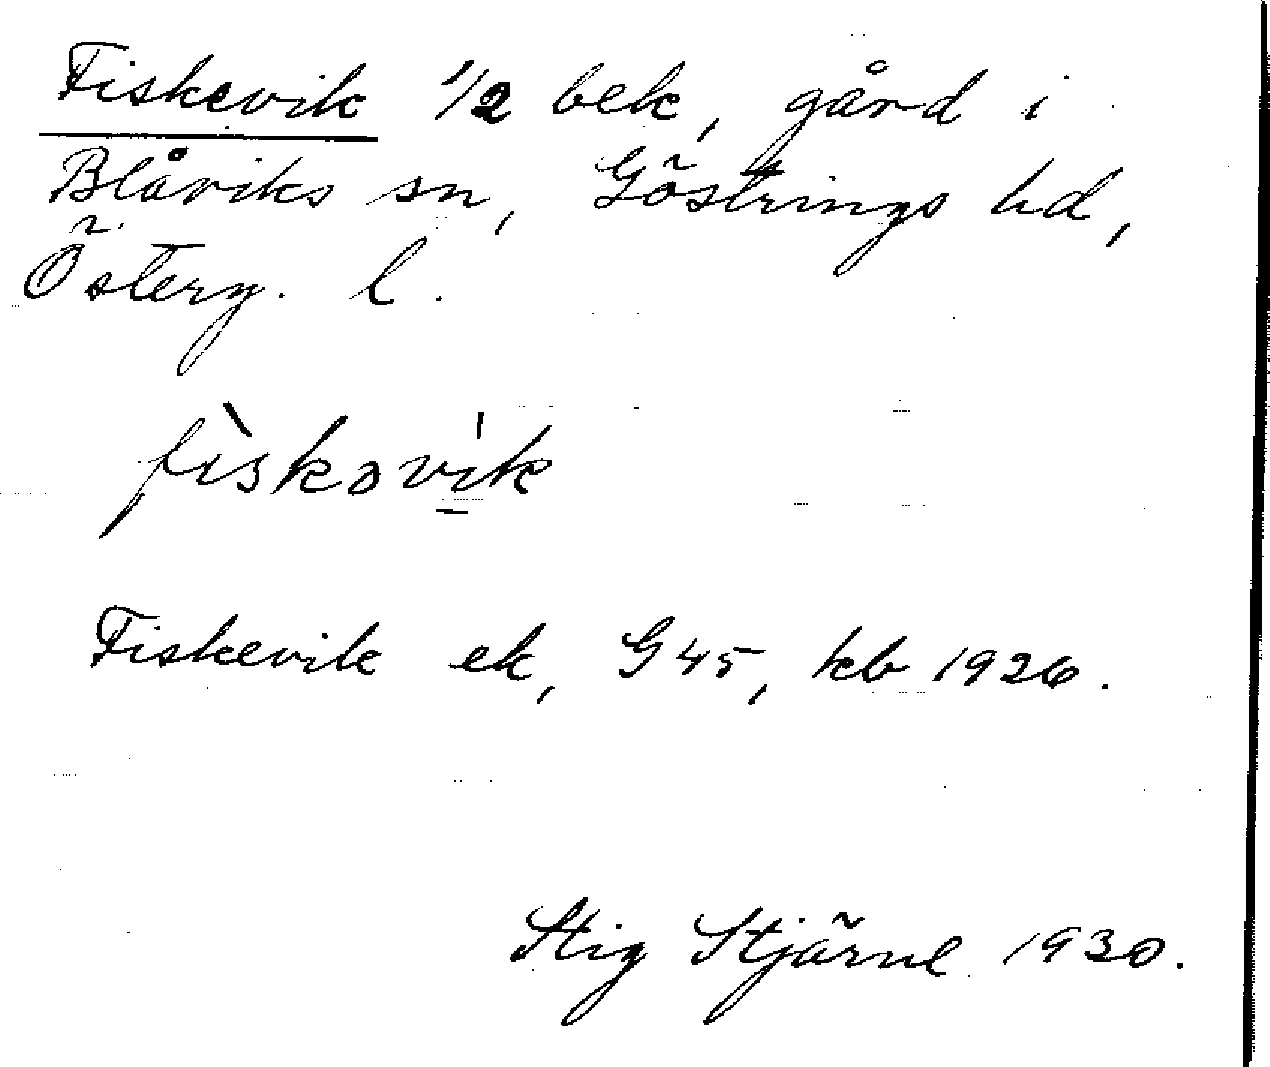 Fiskevik 1/2 bek, gård i
Blåviks sn, Göstrings hd,
Österg. l.
fìskəvi̠k
Fiskevik ek, G45, kb 1926.
Stig Stjärne 1930.